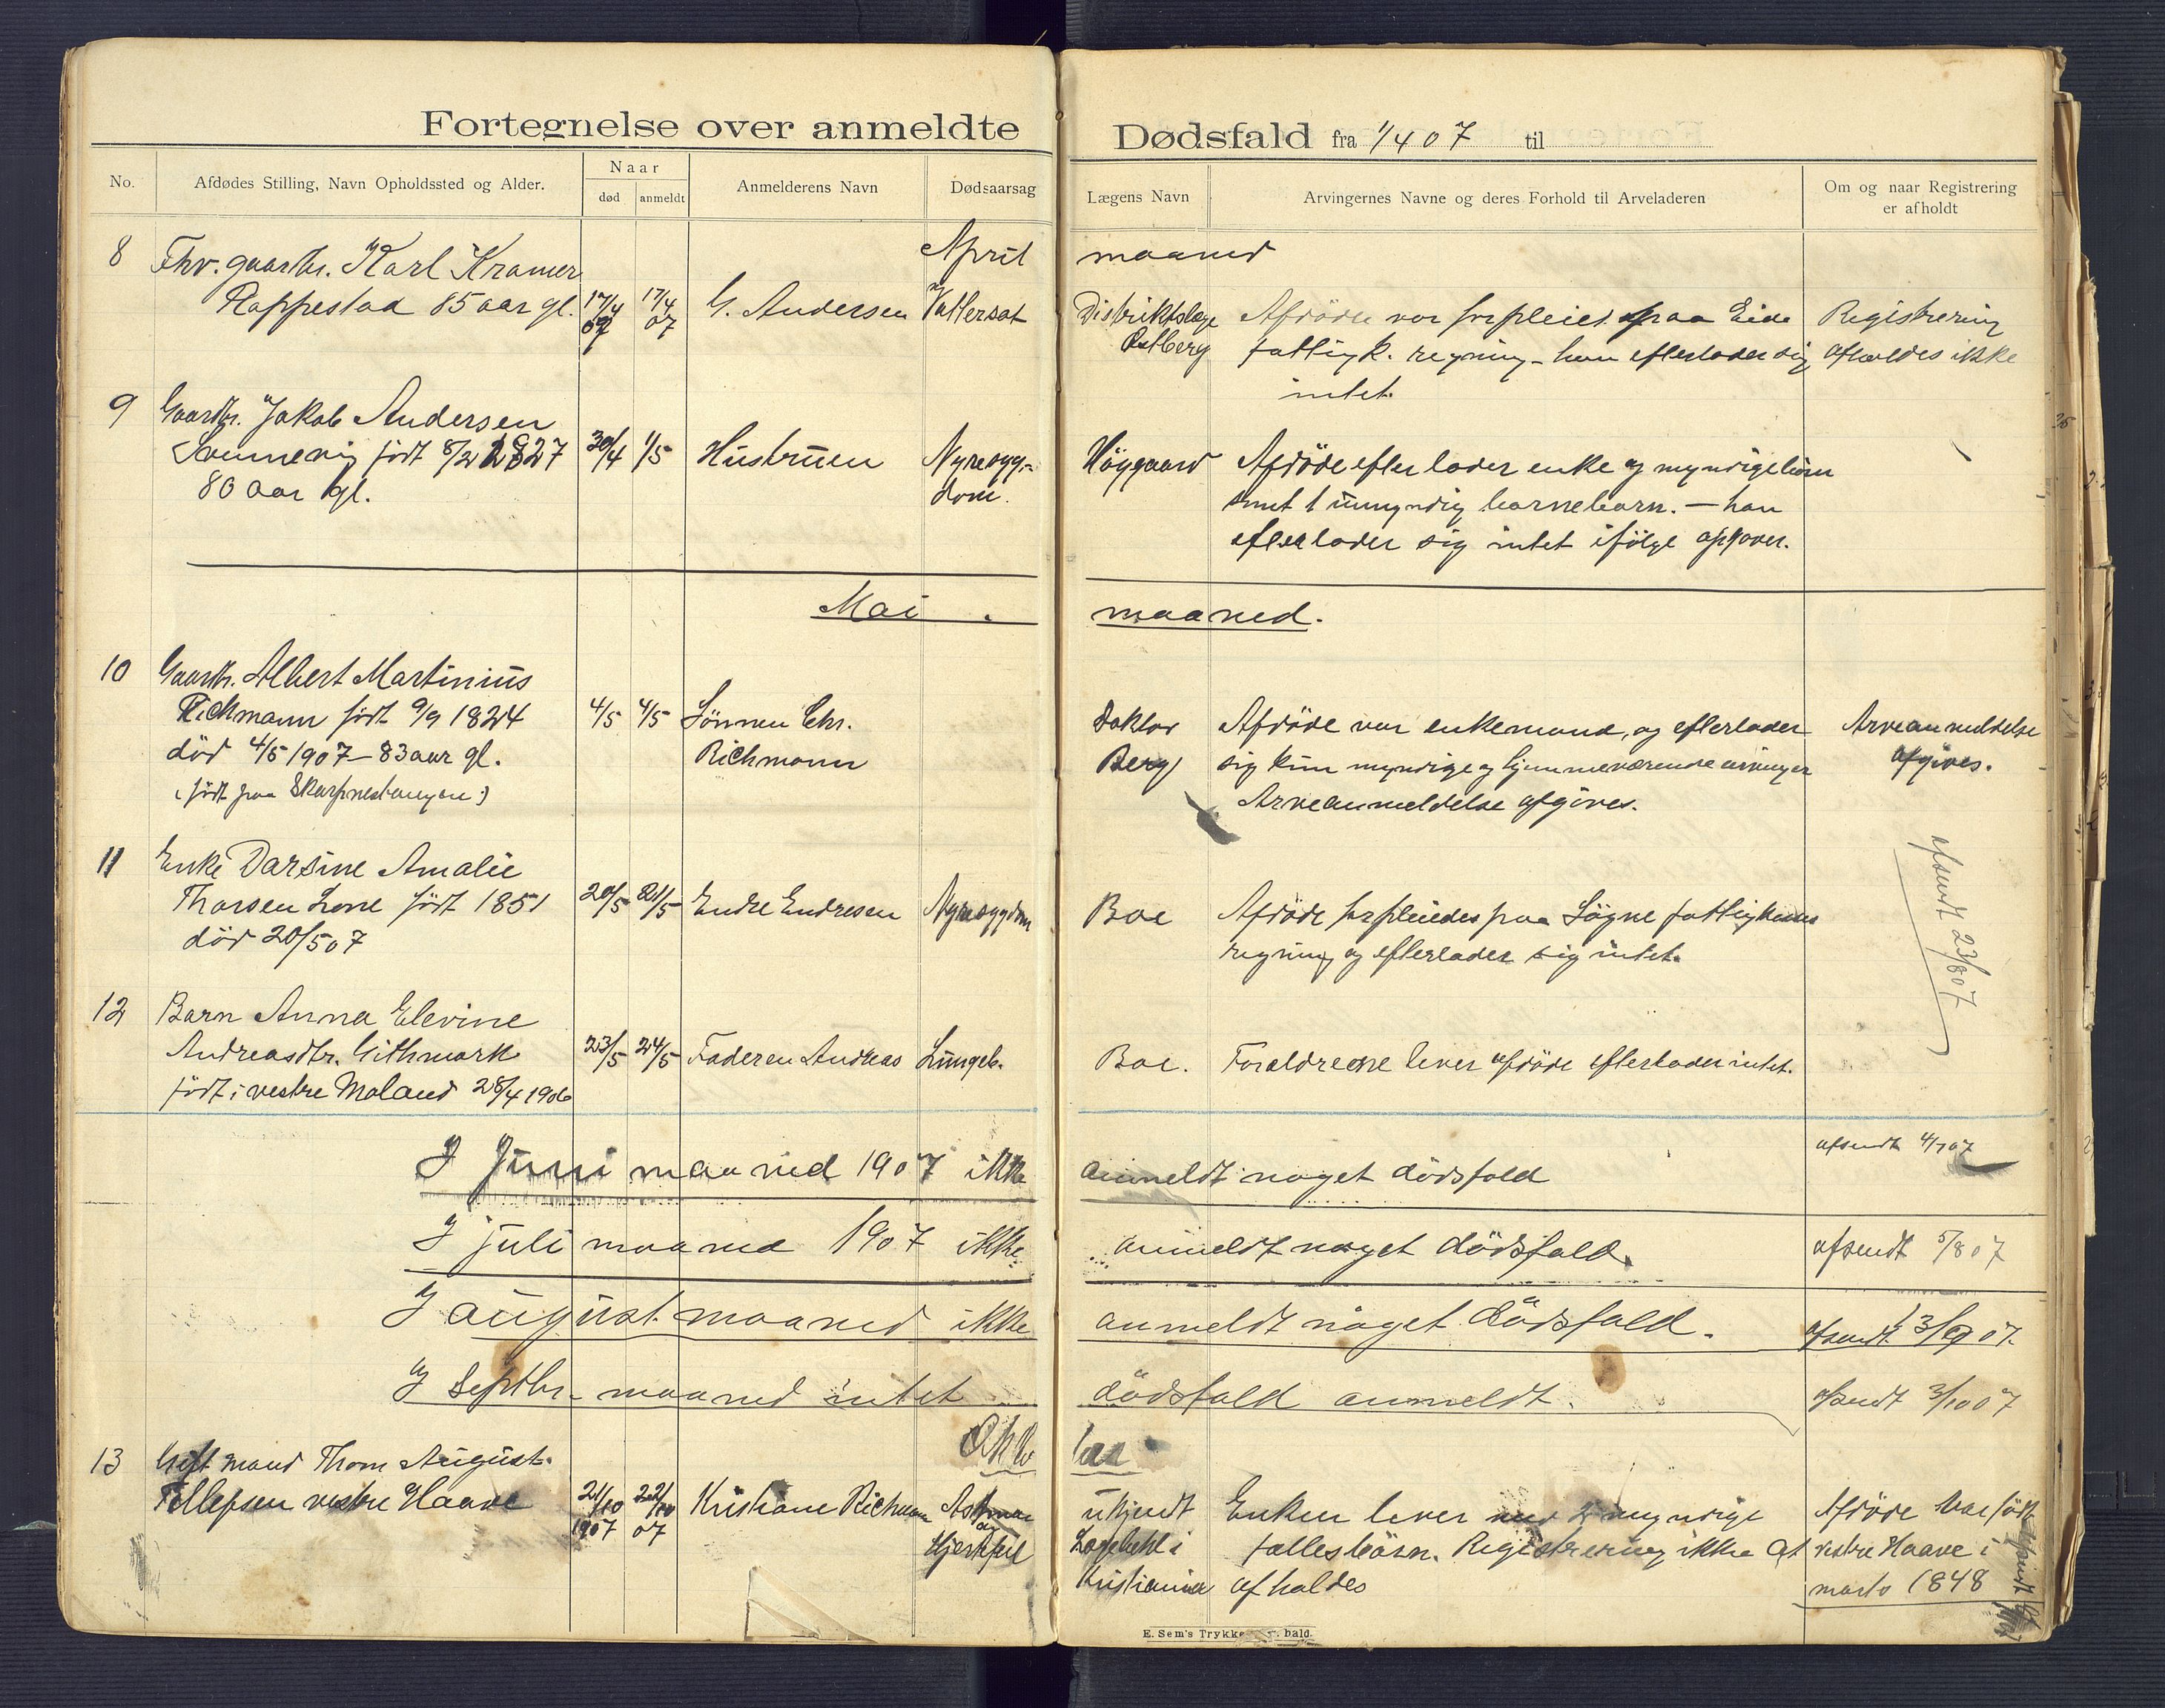 Fortegnelse over anmeldte Dødsfald fra 1/4 07 til
No. Afdødes Stilling, Navn Opholdssted og Alder. Naar død anmeldt Anmelderens Navn Dødsaarsag Lægens Navn Arvingernes Navne og deres Forhold til Arveladeren Om og naar Registrering er afholdt
April maaned
8 Fhv. gaardbr. Karl Kramer
Rappestad 85 aar gl. 17/4 07 17/4 07 G. Andersen Vattersot Distriktslæge Afdöde var forpleiet paa Eide Registrering
fattigk. regning - han efterlader sig afholdes ikke
intet.
9 Gaardbr. Jakob Andersen
født 8/2 1827 30/4 1/5 Hustruen Nyresyg- Höygaard Afdöde efterlader enke og myndige börn
80 aar gl. dom. samt 1 umyndig barnebarn. — han
efterlader sig intet ifölge opgaver.
Mai maaned.
10 Gaardbr. Albert Martinius
Richmann födt 9/9 1824 4/5 4/5 Sönnen Chr. Doktor Afdöde var enkemand, og efterlader Arveanmeldelse
död 4/5 1907 - 83 aar gl. Richmann Berg sig kun myndige og hjemmeværende arvinger afgives.
(födt paa :) Arveanmeldelse afgives.
11 Enke Darsine Amalie
Thorsen Lone födt 1851 20/5 21/5 Endre Endresen Nyresygdom Boe Afdöde forpleiedes paa Sögne fattigkasses
död 20/5 07 regning og efterlader sig intet.
afsendt 23/8 07
12 Barn Anna Elevine
Andreasdtr. Githmark 23/5 24/5 Faderen Andreas Lungeb. Boe. Forældrerne lever afdöde efterlader intet.
födt i vestre Moland 28/4 1906
I Juni maaned 1907 ikke anmeldt noget dödsfald afsendt 4/7 07
I juli maaned 1907 ikke anmeldt noget dödsfald. afsendt 5/8 07
I august maaned ikke anmeldt noget dödsfald. afsendt 3/9 07.
I Septbr. maaned intet dödsfald anmeldt. afsendt 3/10 07
Oktober
13 Gift mand Thom August
Tellefsen vestre Haave 21/10 1907 22/10 07 Kristiane Richmann Astma ukjendt Enken lever med 2 myndige Afdöde var födt
og Hjertefeil i fællesbörn. Registrering ikke at vestre Haave i
Kristiania afholdes marts 1848
E. Sem's